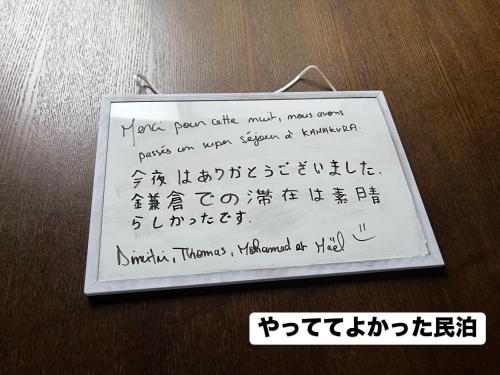 Merci pour cette nuit, nous avons
passés un super séjour à KAMAKURA.
今夜はありがとうございました.
鎌倉での滞在は素晴
らしかったです.
Dimitri, Thomas, Mohamed et Maël
やっててよかった民泊